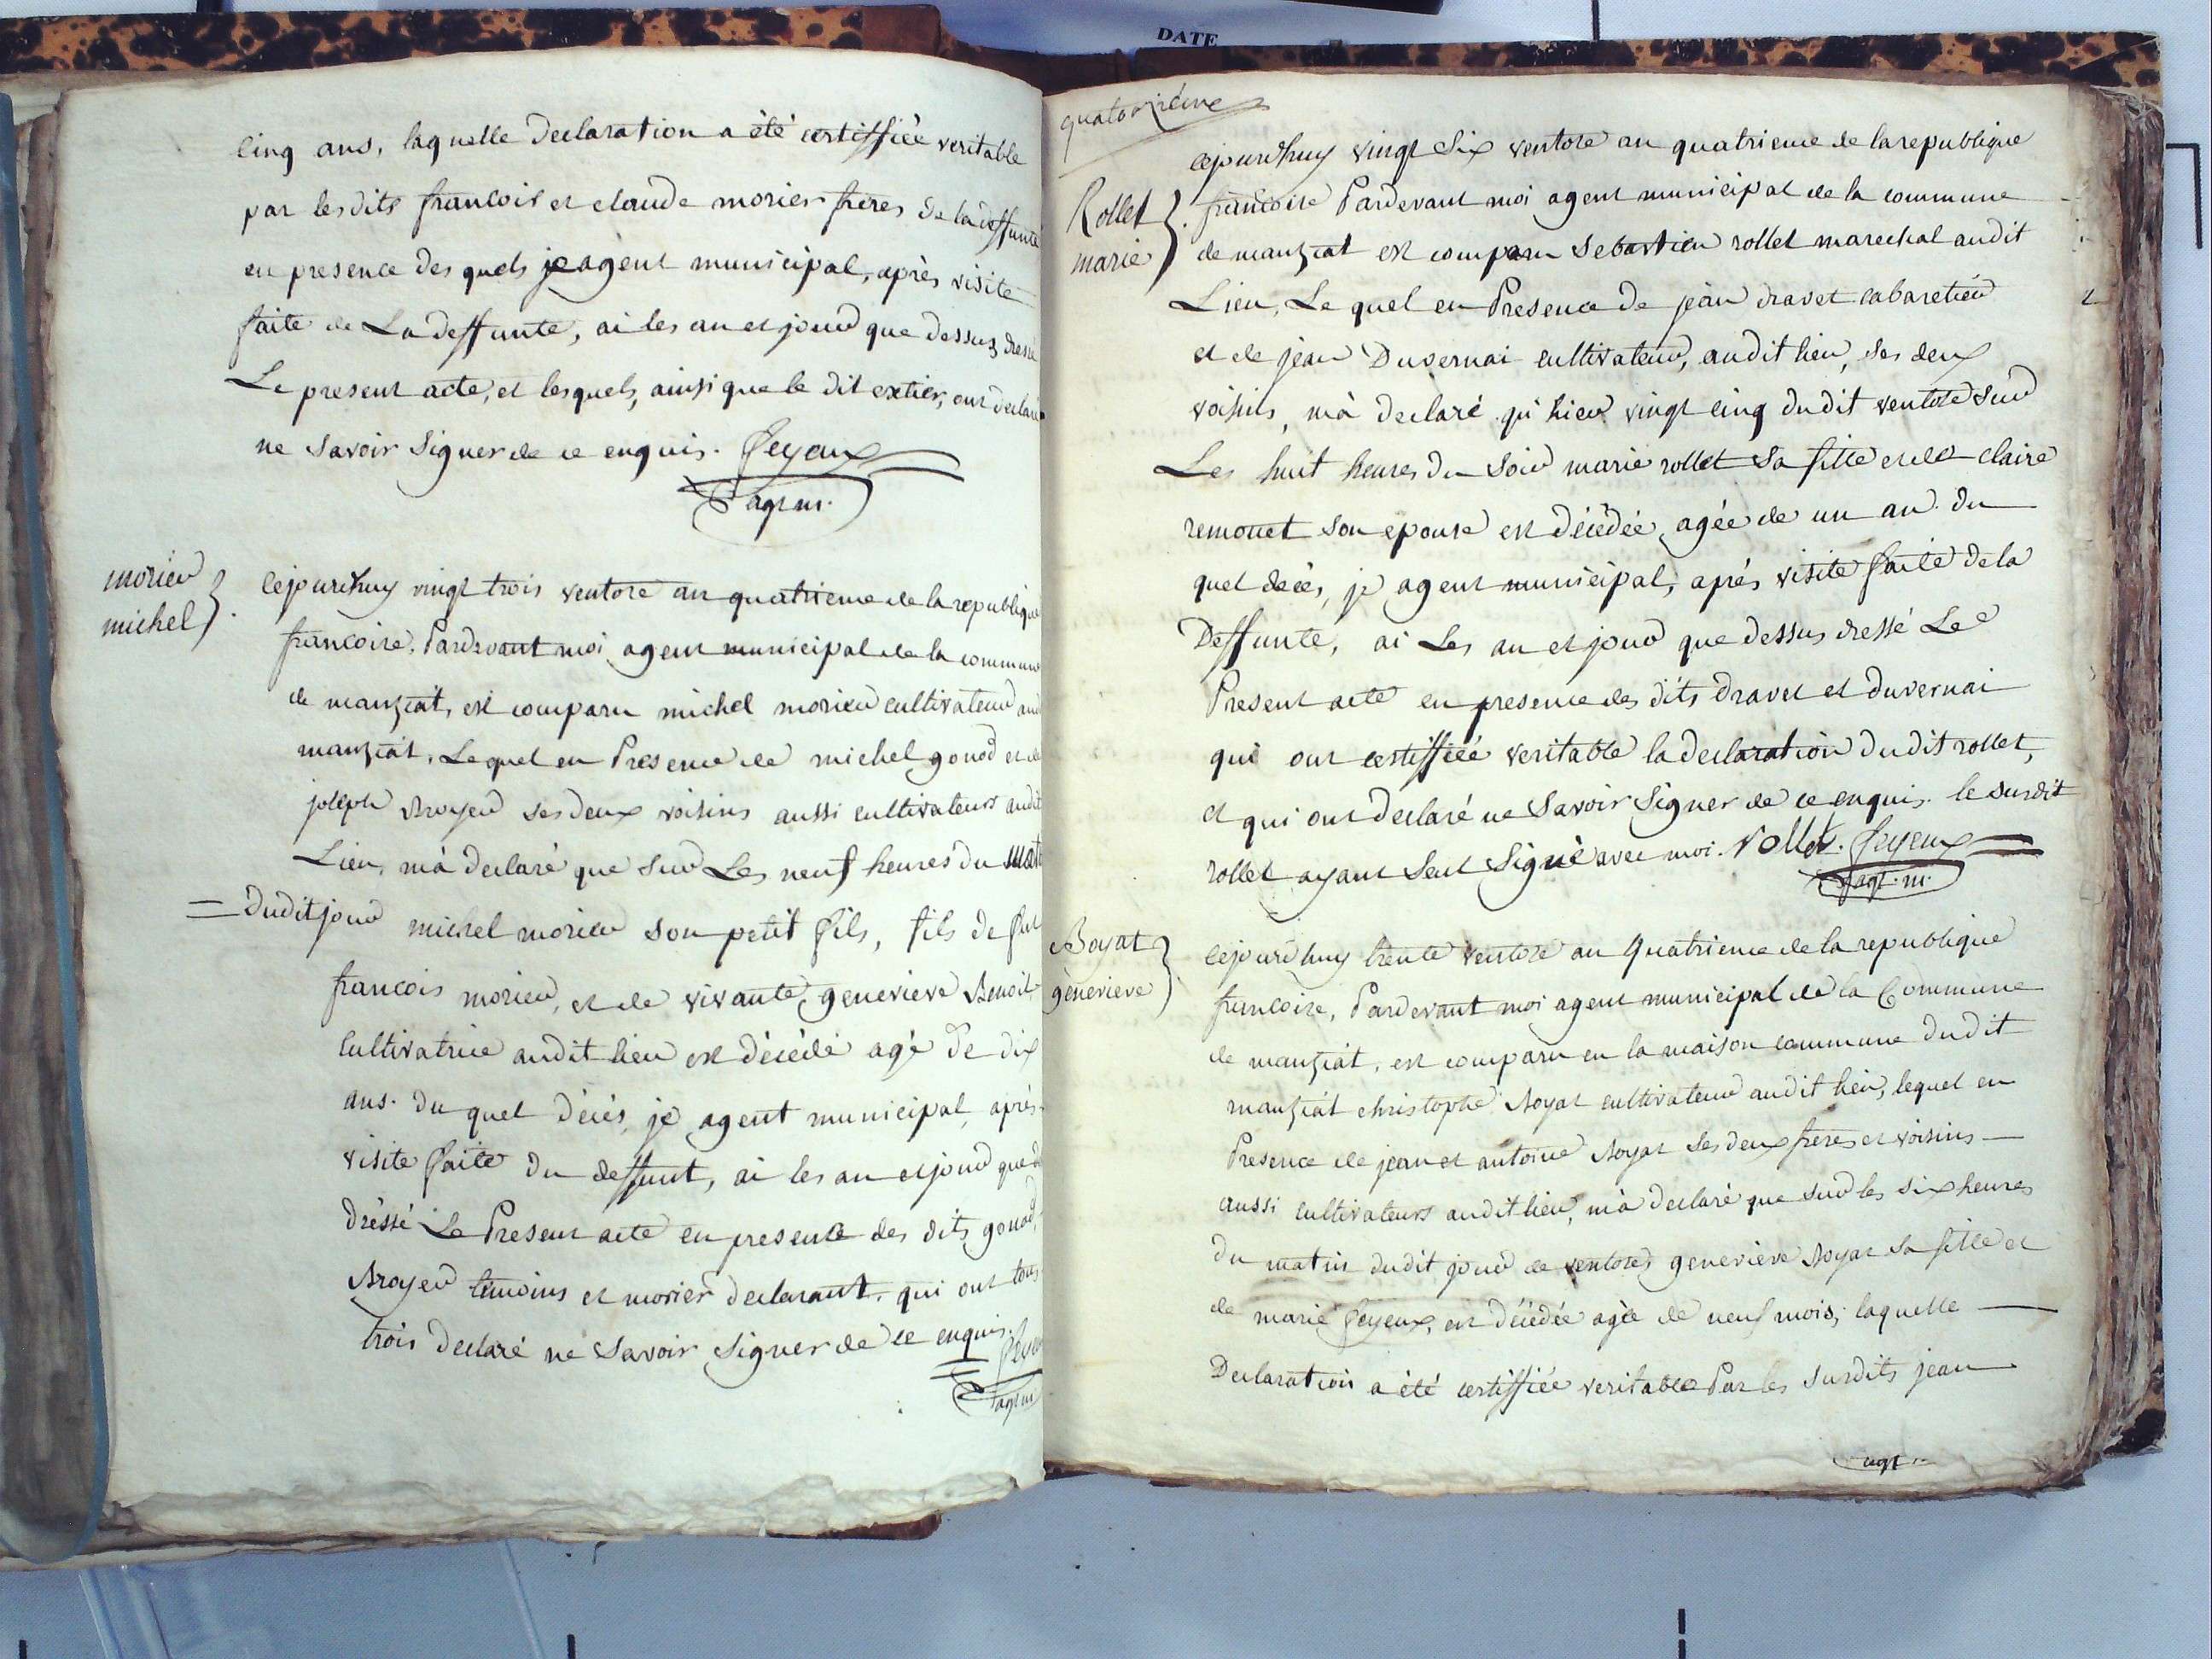 cinq ans, laquelle declaration a été certiffiée veritable
par lesdits francois et claude morier freres de la deffunte
en presence des quels je agent municipal, après visite
faite de La deffunte, ai les an et jour que dessus dressé
Le present acte, et lesquels, ainsi que le dit extier, ont declaré
ne Savoir Signer de ce enquis. feyeux
agt m.
morier
michel
cejourdhuy vingt trois ventose an quatrieme de la republique
francoise, Pardevant moi agent municipal de la commune
de manziat, est comparu michel morier cultivateur aud
manziat, Lequel en Presence de michel gonod et de
joseph Broyer ses deux voisins aussi cultivateurs audit
Lieu, m'à declaré que sur Les neuf heures du mat
= dudit jour michel morier son petit fils, fils de feu
francois morier, et de vivante genevieve Benoit
Cultivatrice audit lieu est décédé agé de dix
ans. du quel décès, je agent municipal, après
visite faite du deffunt, ai les an et jour que d
dréssé Le Present acte en presence des dits gonod,
Broyer témoins et morier declarant, qui ont tous
trois declaré ne Savoir Signer de ce enquis.
agt m
quatorzième
Rollet
marie
cejourdhuy vingt Six ventose an quatrieme de la republique
francoise Pardevant moi agent municipal de la commune
de manziat est comparu Sebastien rollet marechal audit
Lieu, Le quel en Presence de jean dravet cabaretier
et de jean Duvernai cultivateur, audit lieu, ses deux
voisins, m'à declaré qu'hier vingt cinq dudit ventose sur
Les huit heures du Soir marie rollet Sa fille et de claire
remonet son epouse est décédée, agée de un an. du
quel décès, je agent municipal, après visite faite de la
Deffunte, ai Les an et jour que dessus dressé Le
Present acte en presence des dits dravet et duvernai
qui ont certiffiée veritable la declaration dudit rollet,
et qui ont declaré ne Savoir Signer de ce enquis. le surdit
rollet ayant Seul Signé avec moi. rollet. feyeux
agt. m.
Boyat
genevieve
cejourdhuy trente ventose an Quatrieme de la republique
francoise, Pardevant moi agent municipal de la Commune
de manziat, est comparu en la maison commune dudit
manziat christophe Boyat cultivateur audit lieu, lequel en
Presence de jean et antoine Boyat ses deux freres et voisins
aussi cultivateurs audit lieu, m'à declaré que sur les six heures
du matin dudit jour de ventose genevieve Boyat sa fille et
de marie feyeux, est décédée agée de neuf mois; laquelle
Declaration a été certiffiée veritable Par les surdits jean
agt